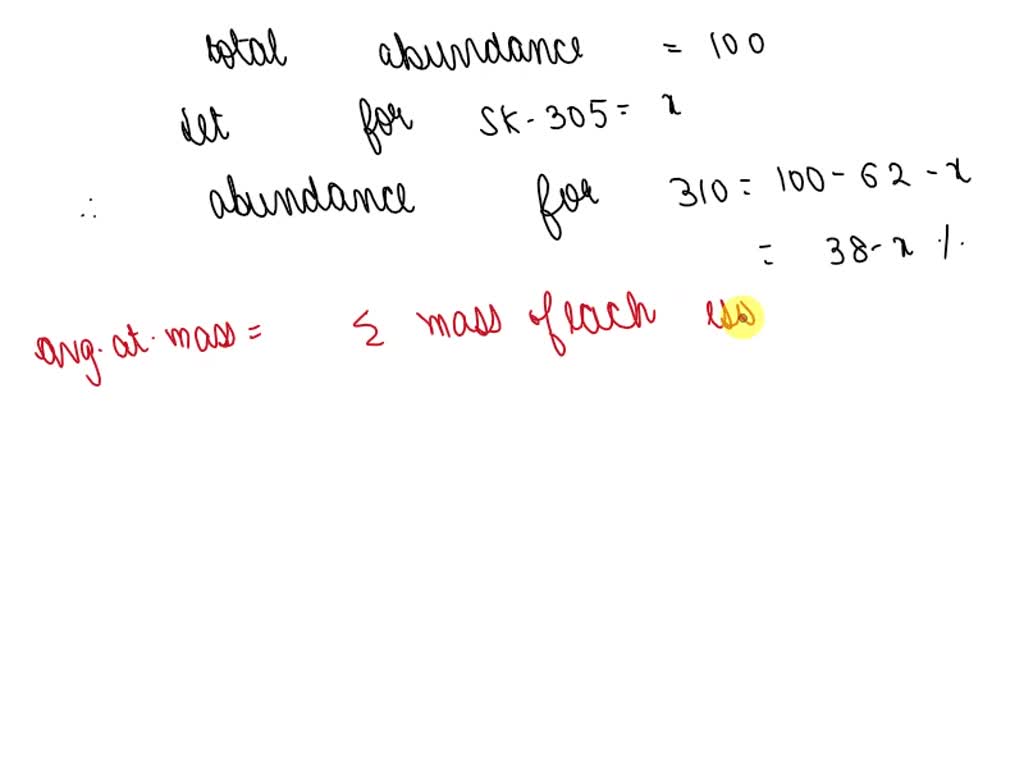 total abundance = 100
Let for SK-305 = x
∴ abundance for 310 = 100 - 62 - x
= 38 - x %
avg. at. mass = Σ mass of each iso